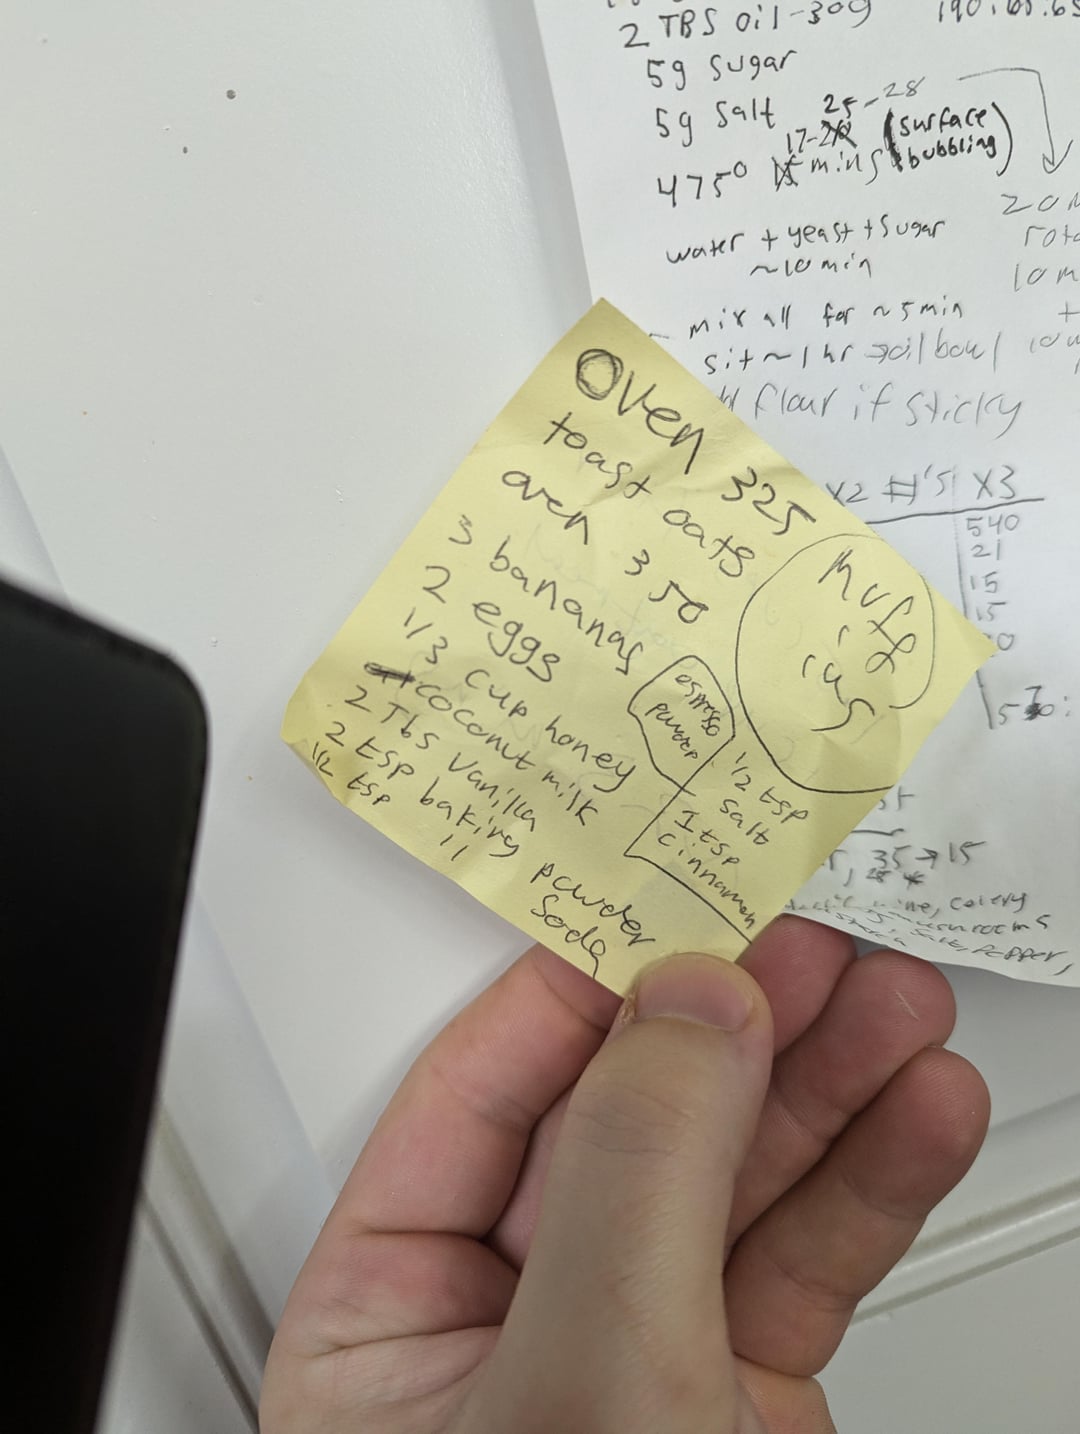 2 TBS oil - 30g
5g sugar
5g salt
25-28
17-20
(surface
bubbling)
475° 15 mins
20
water + yeast + sugar
~10 min
10 m
mix all for ~ 5 min +
sit ~ 1 hr → oil bowl
flour if sticky
x2 #'s x3
540
21
15
15
0
Oven 325
toast oats
oven 350
3 bananas
2 eggs
1/3 cup honey
coconut milk
2 Tbs vanilla
2 tsp baking powder
1/2 tsp " soda
espresso
powder
1/2 tsp
salt
1 tsp
cinnamon
muff
ins
35 → 15
celery
mushrooms
salt, pepper,